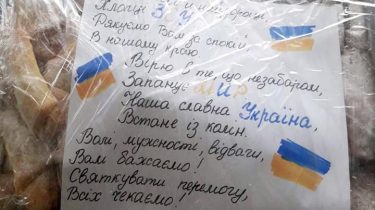 Хлопці З У
Дякуємо Вам за спокій
В нашому краю
Вірю в те що незабаром,
Запанує Мир
Наша славна Україна,
Встане із колін.
Вам, мужності, відваги,
Вам бажаємо!
Святкувати перемогу,
Всіх чекаємо!